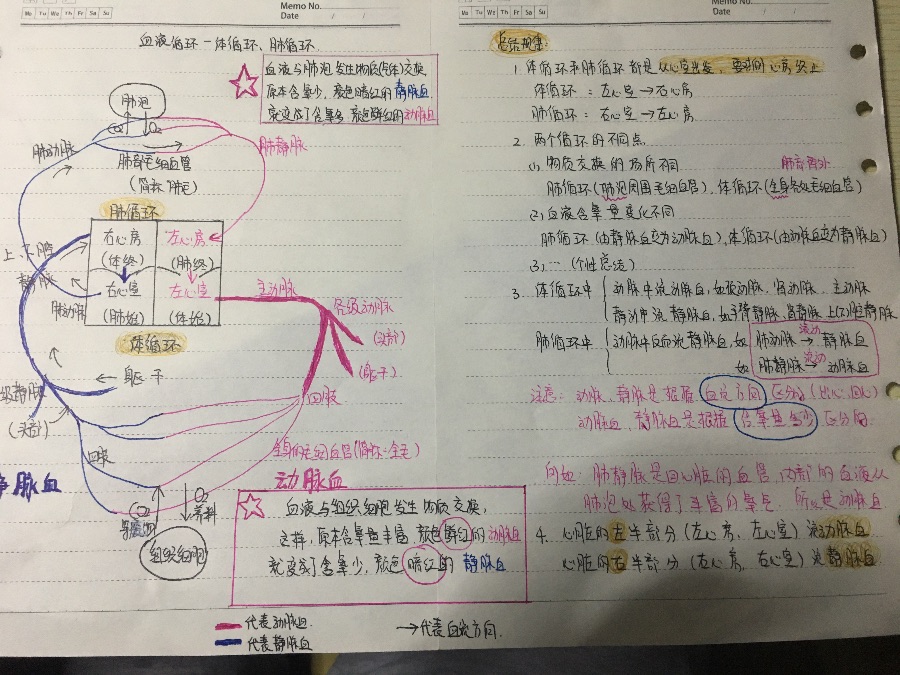 Memo No.
Mo Tu We Th Fr Sa Su
Date / /
血液循环-体循环、肺循环
血液与肺泡发生物质(气体)交换
原本含氧少,颜色暗红的静脉血
就变成了含氧多 颜色鲜红的动脉血
肺泡
O₂
肺动脉
肺静脉
肺部毛细血管
(简称:肺毛)
肺循环
右心房
左心房
(体终)
(肺终)
上、下腔
静脉
右心室
左心室
主动脉
肺动脉
各级动脉
(肺始)
(体始)
(头部)
体循环
(躯干)
躯干
级静脉
四肢
(头部)
全身的毛细血管(简称:全毛)
四肢
静脉血
动脉血
O₂
养料
组织细胞
血液与组织细胞发生物质交换,
这样,原本含氧量丰富,颜色鲜红的动脉血
就变成了含氧少,颜色暗红的 静脉血
代表动脉血
代表静脉血
→代表血液方向.
Memo No.
Mo Tu We Th Fr Sa Su
Date / /
总结规律:
1. 体循环和肺循环都是从心室出发,要到的心房终止
体循环:左心室→右心房
肺循环:右心室→左心房
2. 两个循环的不同点
(1)物质交换的场所不同
肺循环(肺泡周围毛细血管),体循环(全身各处毛细血管)
肺部以外
(2)血液含氧量变化不同
肺循环(由静脉血变为动脉血),体循环(由动脉血变为静脉血)
(3)…(个性总结)
3. 体循环中
动脉中流动脉血,如肱动脉、肾动脉、主动脉
静脉中流静脉血,如手臂静脉、肾静脉、上(下)腔静脉
肺循环中
动脉中反而流静脉血,如 肺动脉 流动→ 静脉血
如 肺静脉 流动→ 动脉血
注意:动脉、静脉是根据 血流方向 区分的(出心、回心)
动脉血,静脉血是根据 含氧量多少 区分的.
例如:肺静脉是回心脏的血管,内部的血液从
肺泡处获得了丰富的氧气.所以是动脉血
4. 心脏的左半部分(左心房、左心室)流动脉血
心脏的右半部分(右心房、右心室)流静脉血.